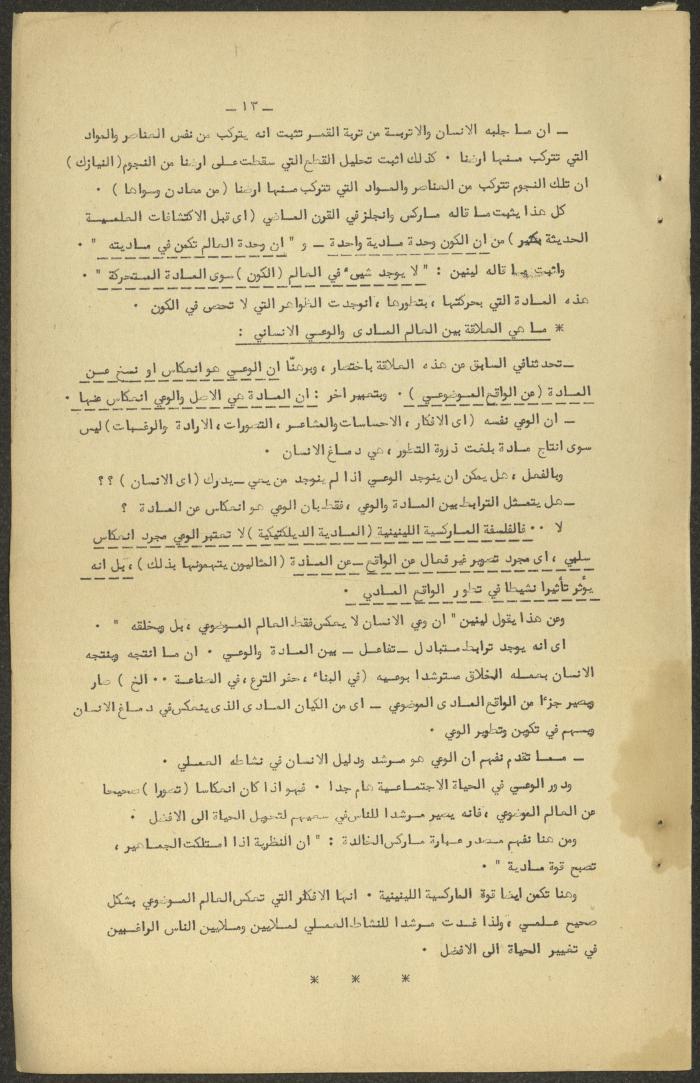 ــ ١٣ ــ
ــ ان ما جلبه الانسان والاتربة من تربة القمر تثبت انه يتركب من نفس العناصر والمواد
التي تتركب منها ارضنا ٠ كذلك اثبت تحليل القطع التي سقطت على ارضنا من النجوم ( النيازك )
ان تلك النجوم تتركب من العناصر والمواد التي تتركب منها ارضنا ( من معادن وسواها ) ٠
كل هذا يثبت ما قاله ماركس وانجلز في القرن الماضي ( اى قبل الاكتشافات العلمية
الحديثة بكثير ) من ان الكون وحدة مادية واحدة ــ و " ان وحدة العالم تكمن في ماديته " ٠
واثبت ما قاله لينين : " لا يوجد شيء في العالم ( الكون ) سوى المادة المتحركة " ٠
هذه المادة التي بحركتها ، بتطورها ، انوجدت الظواهر التي لا تحصى في الكون ٠
* ما هي العلاقة بين العالم المادى والوعي الانساني :
ــ تحدثنا في السابق عن هذه العلاقة باختصار ، وبرهنّا ان الوعي هو انعكاس او نسخ عن
المادة ( عن الواقع الموضوعي ) ٠ وبتعبير اخر : ان المادة هي الاصل والوعي انعكاس عنها ٠
ــ ان الوعي نفسه ( اى الافكار ، الاحساسات والمشاعر ، التصورات ، الارادة والرغبات ) ليس
سوى انتاج مادة بلغت ذروة التطور ، هي دماغ الانسان ٠
وبالفعل ، هل يمكن ان ينوجد الوعي اذا لم ينوجد من يعي ــ يدرك ( اى الانسان ) ؟؟
ــ هل يتمثل الترابط بين المادة والوعي ، فقط بان الوعي هو انعكاس عن المادة ؟
لا ٠٠ فالفلسفة الماركسية اللينينية ( المادية الديلكتيكية ) لا تعتبر الوعي مجرد انعكاس
سلبي ، اى مجرد تصوير غير فعال عن الواقع ــ عن المادة ( المثاليون يتهمونها بذلك ) ، بل انه
يؤثر تأثيرا نشيطا في تطور الواقع المادي ٠
وعن هذا يقول لينين " ان وعي الانسان لا يعكس فقط العالم الموضوعي ، بل ويخلقه " ٠
اى انه يوجد ترابط متبادل ــ تفاعل ــ بين المادة والوعي ٠ ان ما انتجه وينتجه
الانسان بعمله الخلاق مسترشدا بوعيه ( في البناء ، حفر الترع ، في الصناعة ٠٠ الخ ) صار
ويصير جزءا من الواقع المادى الموضوعي ــ اى من الكيان المادى الذى ينعكس في دماغ الانسان
ويسهم في تكوين وتطوير الوعي ٠
ــ مما تقدم نفهم ان الوعي هو مرشد ودليل الانسان في نشاطه العملي ٠
ودور الوعي في الحياة الاجتماعية هام جدا ٠ فهو اذا كان انعكاسا ( تصورا ) صحيحا
عن العالم الموضوعي ، فانه يصير مرشدا للناس في سعيهم لتحويل الحياة الى الافضل ٠
ومن هنا نفهم مصدر عبارة ماركس الخالدة : " ان النظرية اذا امتلكت الجماهير ،
تصبح قوة مادية " ٠
وهنا تكمن ايضا قوة الماركسية اللينينية ٠ انها الافكار التي تعكس العالم الموضوعي بشكل
صحيح علمي ، ولذا غدت مرشدا للنشاط العملي لملايين وملايين الناس الراغبين
في تغيير الحياة الى الافضل ٠
* * *